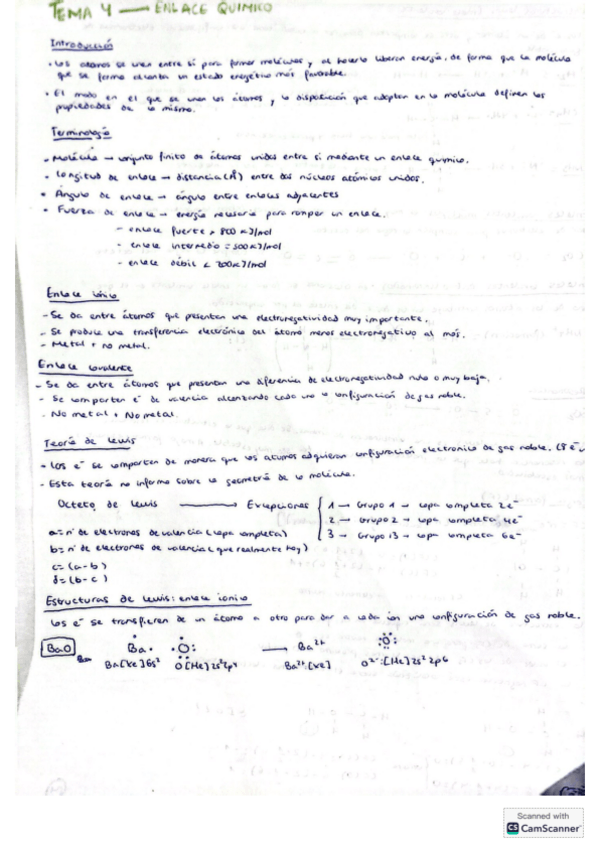 TEMA 4 → ENLACE QUIMICO
Introducción
• Los átomos se unen entre sí para formar moléculas y al hacerlo liberan energía, de forma que la molécula
que se forma alcanza un estado energético más favorable.
• El modo en el que se unen los átomos y la disposición que adoptan en la molécula definen las
propiedades de la misma.
Terminología
- Molécula → conjunto finito de átomos unidos entre sí mediante un enlace químico.
- Longitud de enlace → distancia (Å) entre dos núcleos atómicos unidos.
• Ángulo de enlace → ángulo entre enlaces adyacentes
• Fuerza de enlace → energía necesaria para romper un enlace.
- enlace fuerte > 800 KJ/mol
- enlace intermedio = 500 KJ/mol
- enlace débil < 200 KJ/mol
Enlace iónico
- Se da entre átomos que presentan una electronegatividad muy importante.
- Se produce una transferencia electrónica del átomo menos electronegativo al más.
- Metal + no metal.
Enlace covalente
- Se da entre átomos que presentan una diferencia de electronegatividad nula o muy baja.
- Se comparten e⁻ de valencia alcanzando cada uno la configuración de gas noble.
- No metal + No metal.
Teoría de Lewis
• Los e⁻ se comparten de manera que los átomos adquieran configuración electronica de gas noble. (8 e⁻
- Esta teoría no informa sobre la geometría de la molécula.
Octeto de Lewis → Excepciones { 1 → Grupo 1 → capa completa 2e⁻
2 → Grupo 2 → capa completa 4e⁻
3 → Grupo 13 → capa completa 6e⁻
a = nº de electrones de valencia (capa completa)
b = nº de electrones de valencia (que realmente hay)
c = (a-b)
d = (b-c)
Estructuras de Lewis: enlace ionico
Los e⁻ se transfieren de un átomo a otro para dar a cada ion una configuración de gas noble.
BaO Ba Ba· ·O: → Ba²⁺ :O:
Ba[Xe]6s² O[He]2s²2p⁴ Ba²⁺:[Xe] O²⁻:[He]2s²2p6
Scanned with
CS CamScanner